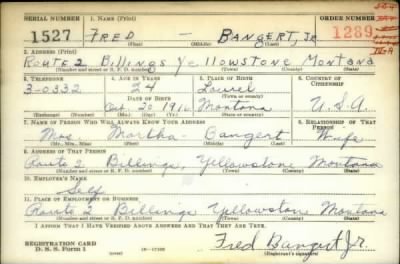 SERIAL NUMBER 1. NAME (Print) ORDER NUMBER
1527 FRED — BANGERT, Jr 1289
(First) (Middle) (Last)
2. ADDRESS (Print)
ROUTE 2 Billings Yellowstone Montana
(Number and street or R. F. D. number) (Town) (County) (State)
3. TELEPHONE 4. AGE IN YEARS 5. PLACE OF BIRTH 6. COUNTRY OF CITIZENSHIP
3-0332 24 Laurel
DATE OF BIRTH (Town or county)
1916 Montana U.S.A.
(Exchange) (Number) (Mo.) (Day) (Yr.) (State or country)
7. NAME OF PERSON WHO WILL ALWAYS KNOW YOUR ADDRESS 8. RELATIONSHIP OF THAT PERSON
Mrs Martha - Bangert Wife
(Mr., Mrs., Miss) (First) (Middle) (Last)
9. ADDRESS OF THAT PERSON
Route 2 Billings, Yellowstone Montana
(Number and street or R. F. D. number) (Town) (County) (State)
10. EMPLOYER'S NAME
Self
11. PLACE OF EMPLOYMENT OR BUSINESS
Route 2 Billings Yellowstone Montana
(Number and street or R. F. D. number) (Town) (County) (State)
I AFFIRM THAT I HAVE VERIFIED ABOVE ANSWERS AND THAT THEY ARE TRUE.
REGISTRATION CARD
D. S. S. Form 1 Fred Bangert Jr.
(Registrant's signature)